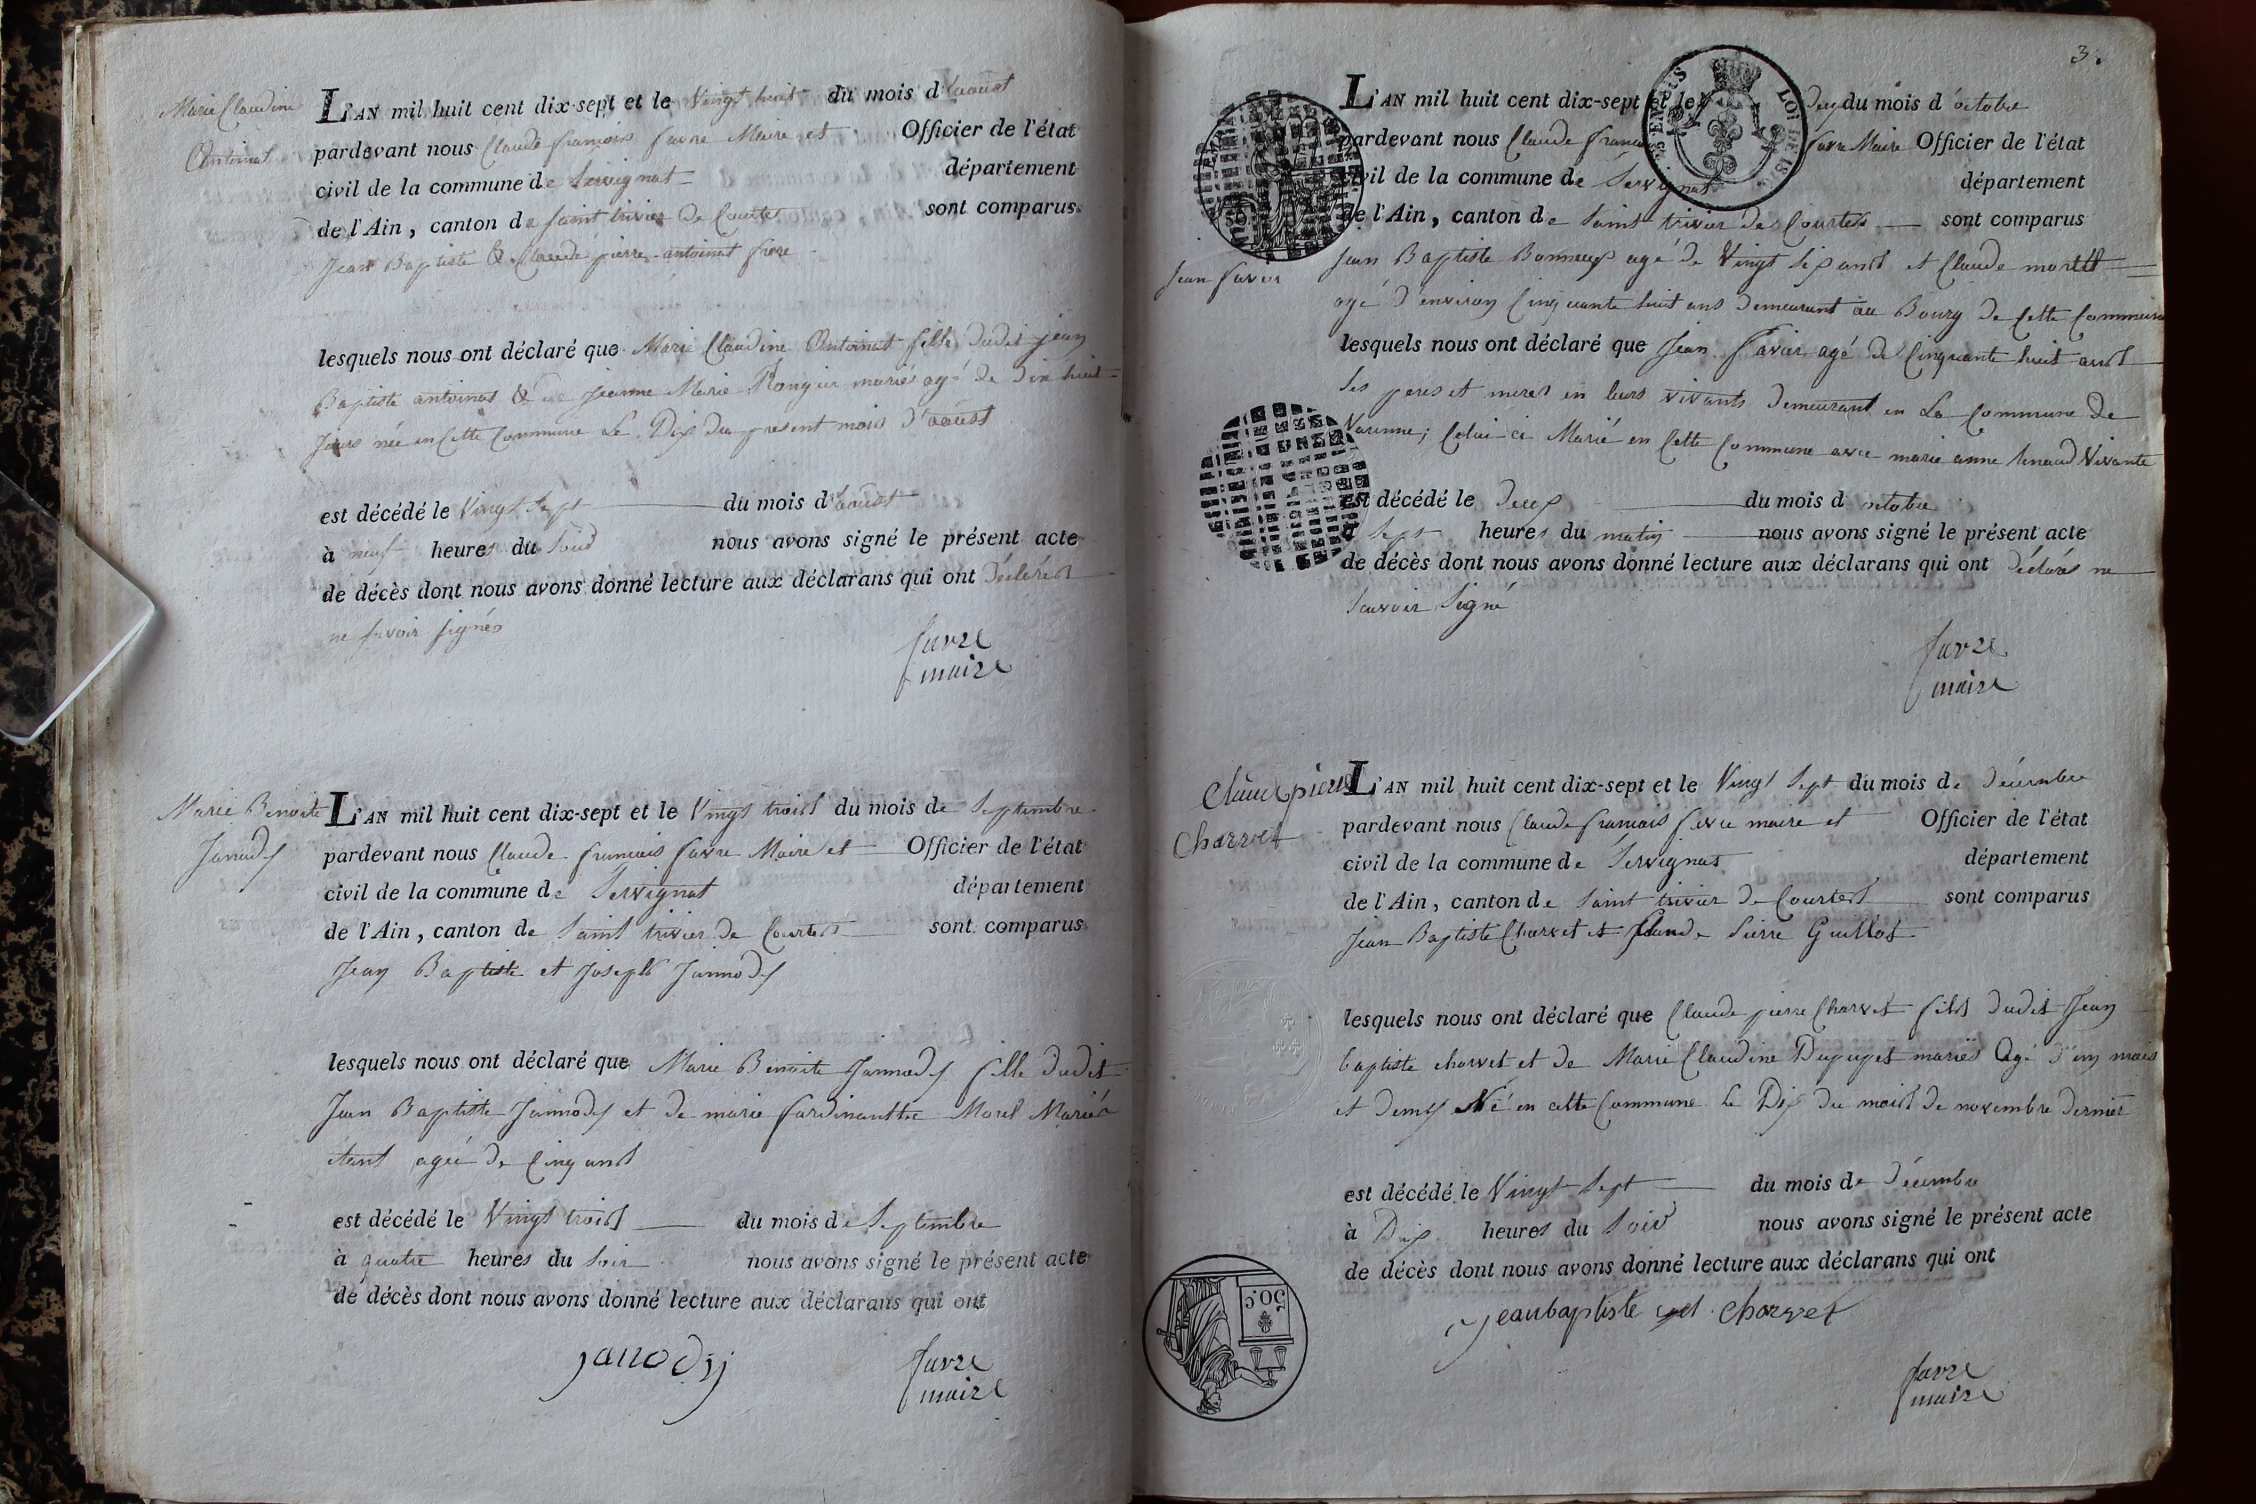 Marie Claudine
Antoinat
L'AN mil huit cent dix-sept et le Vingt huit du mois d'aoust
pardevant nous Claude françois favre Maire et Officier de l'état
civil de la commune de Servignat département
de l'Ain, canton de saint trivier De Courtes sont comparus
Jean Baptiste & Claude pierre antoinat frere
lesquels nous ont déclaré que Marie Claudine Antoinat fille dudit jean
Baptiste antoinat & de jeanne Marie mariés agé de dix huit
jours née en Cette Commune Le Dix du present mois d'aoust
est décédé le Vingt Sept du mois d'aoust
à neuf heures du Soir nous avons signé le présent acte
de décès dont nous avons donné lecture aux déclarans qui ont Déclarés
ne savoir signés
favre
maire
Marie Benoite
Janody
L'AN mil huit cent dix-sept et le Vingt trois du mois de Septembre
pardevant nous Claude francois favre Maire et Officier de l'état
civil de la commune de Servignat département
de l'Ain, canton de Saint trivier de Courtes sont comparus
Jean Baptiste et Joseph Jannody
lesquels nous ont déclaré que Marie Benoite Jannody fille dudit
Jean Baptiste Jannody et de marie Morel Mariés
étant agée de Cinq ans
est décédé le Vingt trois du mois de Septembre
à quatre heures du soir nous avons signé le présent acte
de décès dont nous avons donné lecture aux déclarans qui ont
janody
favre
maire
3.
L'AN mil huit cent dix-sept et le Deux du mois d'octobre
pardevant nous Claude françois favre Maire Officier de l'état
civil de la commune de Servignat département
de l'Ain, canton de Saint trivier de Courtes sont comparus
LOI DE
Jean favier
Jean Baptiste Bonneux agé de Vingt Six ans et Claude morel
agé d'environ Cinquante huit ans demeurant au Bourg de Cette Commune
lesquels nous ont déclaré que Jean favier agé de Cinquante huit ans
Ses peres et meres en leurs vivants demeurant en La Commune de
Varenne; Celui ci Marié en Cette Commune avec marie anne Renaud Vivante
est décédé le Deux du mois d octobre
à Sept heures du matin nous avons signé le présent acte
de décès dont nous avons donné lecture aux déclarans qui ont Déclarés ne
Savoir Signé
favre
maire
Claude pierre
Charvet
L'AN mil huit cent dix-sept et le Vingt Sept du mois de Décembre
pardevant nous Claude francois favre maire et Officier de l'état
civil de la commune de Servignat département
de l'Ain, canton de Saint trivier de Courtes sont comparus
Jean Baptiste Charvet et Claude Pierre Guillot
lesquels nous ont déclaré que Claude pierre Charvet fils dudit Jean
baptiste charvet et de Marie Claudine Dupupet mariés Agé d'un mois
et demy Né en cette Commune Le Dix du mois de novembre dernier
est décédé le Vingt Sept du mois de Décembre
à Dix heures du Soir nous avons signé le présent acte
de décès dont nous avons donné lecture aux déclarans qui ont
jeanbaptiste charvet
favre
maire
50.c